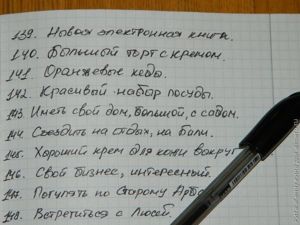 139. Новая электронная книга.
140. Большой торт с кремом.
141. Оранжевые кеды.
142. Красивый набор посуды.
143. Иметь свой дом, большой, с садом.
144. Съездить на отдых, на Бали.
145. Хороший крем для кожи вокруг
146. Свой бизнес, интересный.
147. Погулять по Старому Арба
148. Встретиться с Люсей.